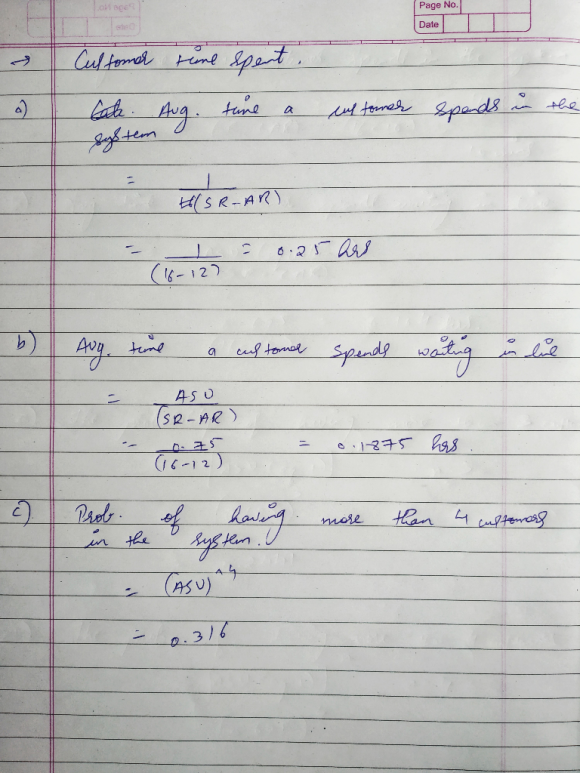 Page No.
Date
→ Customer time spent.
a) Avg. time a customer spends in the
system
= 1
(SR-AR)
= 1 = 0.25 hrs
(16-12)
b) Avg. time a customer spends waiting in line
= ASU
(SR-AR)
= 0.75 = 0.1875 hrs.
(16-12)
c) Prob. of having more than 4 customers
in the system.
= (ASU)^4
= 0.316